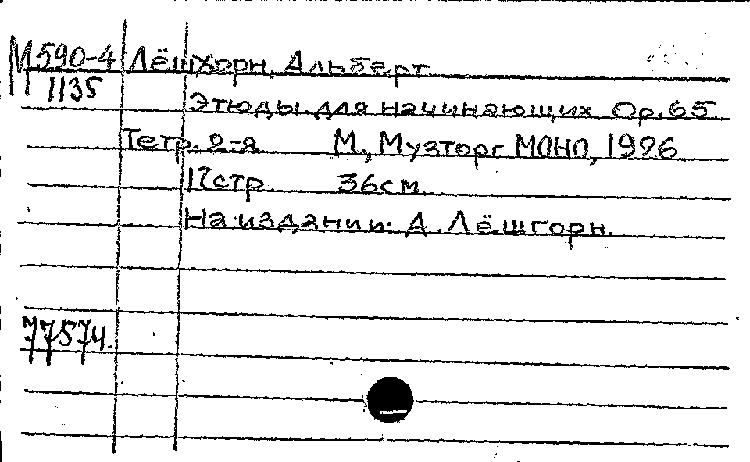 М590-4 Лёшхорн, Альберт
1135
Этюды для начинающих Op. 65
Тетр. 2-я М., Музторг МОНО, 1926
17стр. 36см.
На издании: А. Лёшгорн.
77574.